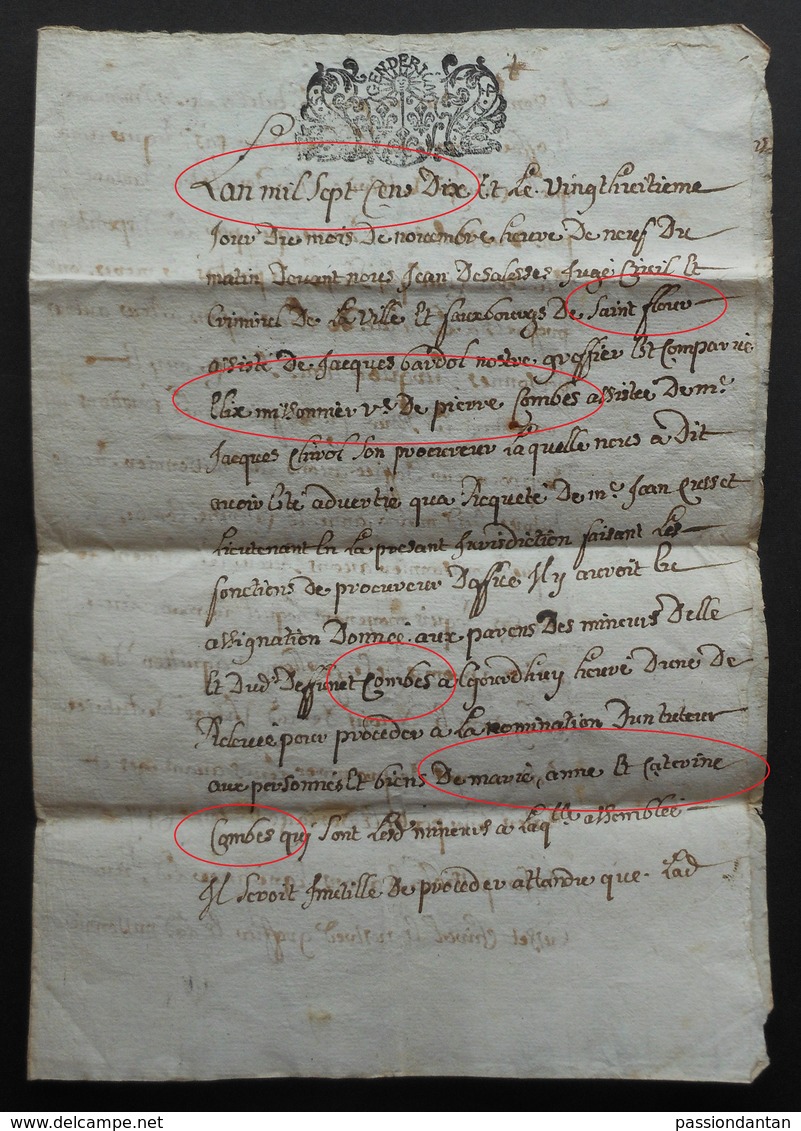 GEN DE RIOM
Lan mil sept Cens Dix Et Le vingthuitieme
Jour Du mois De novembre heure De neuf Du
matin Devant nous Jean Desalesses Juge Civil Et
Criminel De la ville Et fauxbourgs De Saint flour
assisté De Jacques bardol nostre greffier Est Comparüe
Elix missonnier vᵉ De pierre Combes assistee De mᵉ
Jacques Chirol Son procureur laquelle nous a Dit
avoir Esté advertie qua Requete De mᵉ Jean Cusset
lieutenant En La presant Jurisdiction faisant Les
fonctions De procureur Doffice Il y auroit Eu
assignation Donnee aux parens Des mineurs Delle
Et Dudᵗ Deffunct Combes a Ejourdhuy heure Dune De
Relevée pour proceder a La nomination Dun tuteur
aux personnes Et biens De marie, anne Et Caterine
Combes qui sont Lesd mineurs a Laqˡˡᵉ assemblée
Il seroit Inutille De proceder attandu que Lad
passiondantan